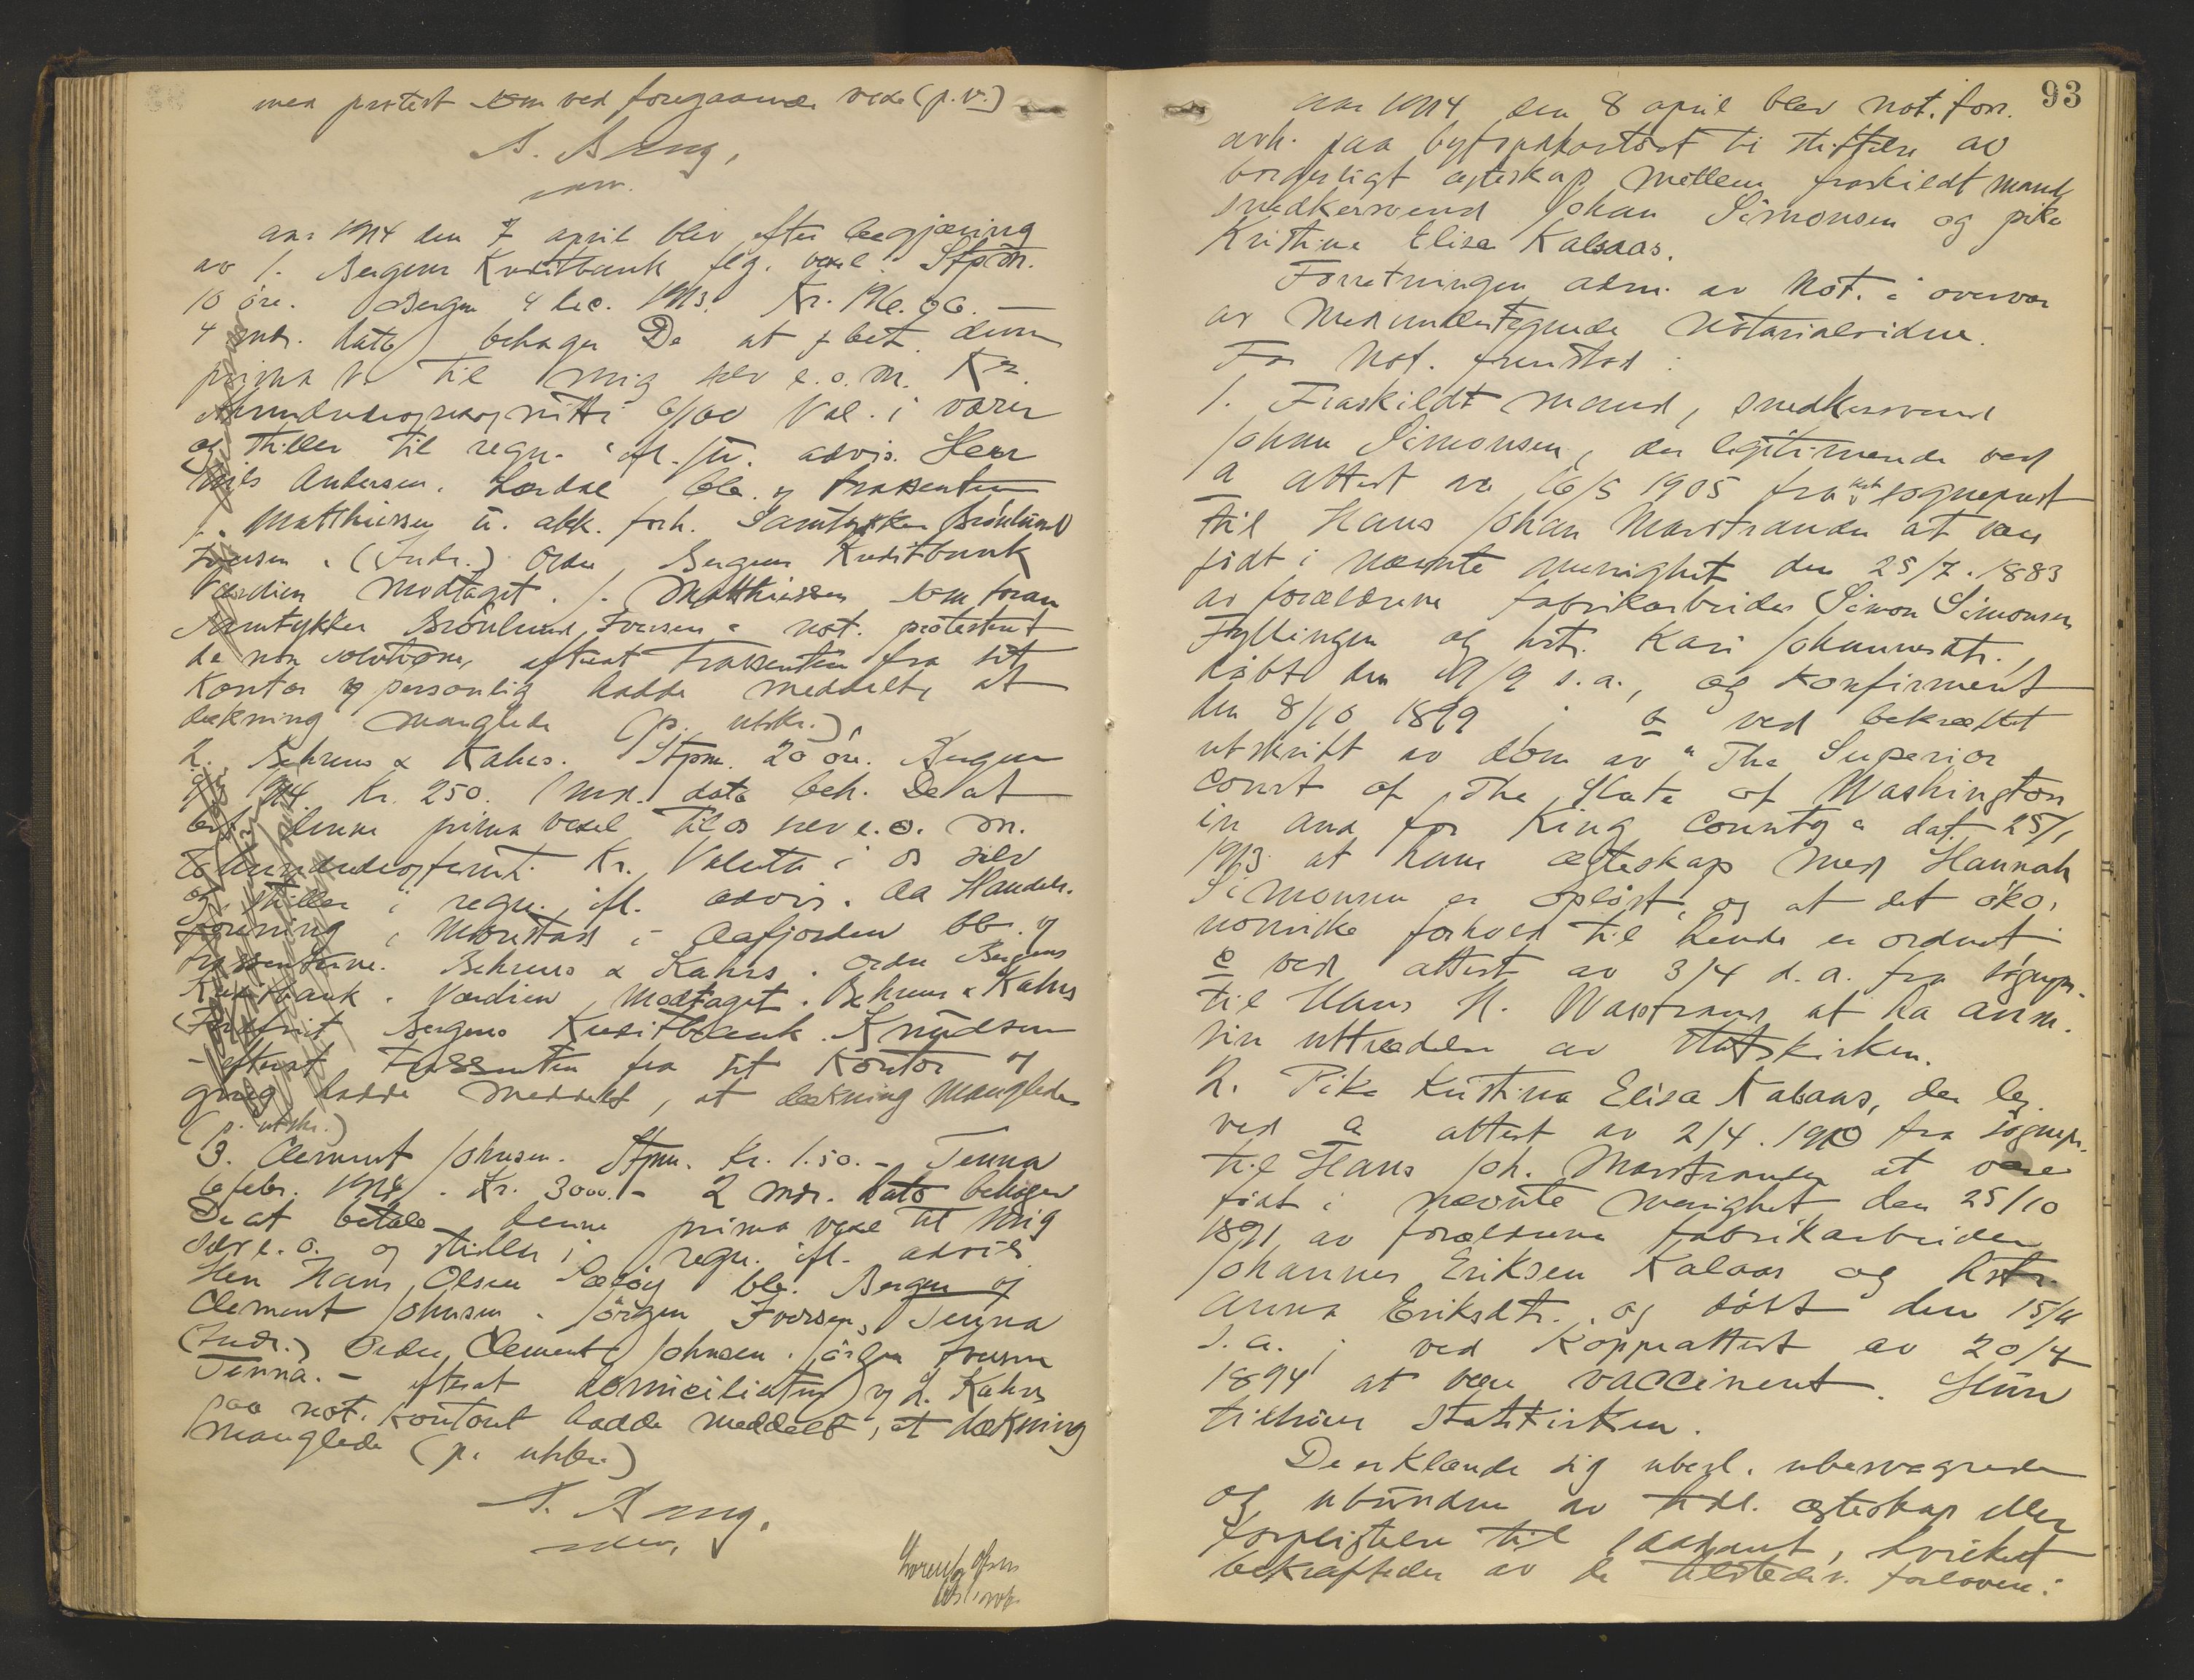 med protest som ved foregaaende vexel (p. v.)
A. Bang,
Aar 1914 den 7 april blev efter begjæring
av 1. Bergens Kreditbank flg. vexel. Stpm.
10 öre. Bergen 4 dec. 1913. Kr. 196.06. —
4 mdr. dato behager De at bet. denne
prima v. til mig selv e. o. m. Kr.
6/100 Val. i varer
og stiller til regn. ifl. advis. Herr
Nils Andersen. Lærdal. bb. og trassenten
J. Matthiessen akk. forh. Samtykker Brönlund
Iversen. (Indr.) Ordre Bergens Kreditbank
Værdien modtaget. J. Matthiessen som foran
Samtykker Brönlund Iversen not. protestert
de non solutione, efterat trassenten fra sit
kontor og personlig hadde meddelt, at
dækning manglede (p. utskr.)
2. Behrens & Kahrs. Stpm. 20 öre. Bergen
1914. Kr. 250. 1 mdr. dato beh. De at
bet. denne prima vexel til os selv e. o. m.
Tohundredeogfemti Kr. Valuta i os selv
og stilles i regn. ifl. advis. Aa Handels-
forening i Aafjorden bb. og
trassenterne. Behrens & Kahrs. Ordre Bergens
Kreditbank. Værdien modtaget. Behrens & Kahrs
Bergens Kreditbank. Knudsen
— efterat trassenten fra sit kontor og
hadde meddelt, at dækning manglede
(p. utskr.)
3. Clement Johnsen. Stpm. Kr. 1.50. — Tenna
6 febr. 1914. Kr. 3000. — 2 mdr. dato behager
De at betale denne prima vexel til mig
selv e. o. og stilles i regn. ifl. advis
Herr Hans Olsen bb. Bergen og
Clement Johnsen. Jörgen Iversen, Tenna
(Indr.) Ordre Clement Johnsen. Jörgen Iversen
Tenna. — efterat domiciliaten og L. Kahrs
paa not. kontoret hadde meddelt, at dækning
manglede (p. utskr.)
A. Bang.
93
Aar 1914 den 8 april blev not. forr.
avh. paa byfogdkontoret ti stiftelse av
borgerligt egteskap mellem fraskildt mand
snedkersvend Johan Simonsen og pike
Kristine Elise Kalsaas.
Forretningen adm. av Not. i overvær
av medundertegnede notarialvidne.
For Not. fremstod:
1. Fraskildt mand, snedkersvend
Johan Simonsen, der legitimerede ved
a attest av 16/5 1905 fra sogneprest
til Haus Johan Marstrander at være
født i nævnte menighet den 25/7. 1883
av forældrene fabrikarbeider Simon Simonsen
Fyllingen og hstr. Kari Johannesdtr.,
døbt den 9/9 s. a., og konfirmert
den 8/10 1899; b ved bekræftet
utskrift av dom av "The Superior
Court of the State of Washington
in and for King County" dat. 25/1
1913 at hans ægteskap med Hannah
Simonsen er opløst, og at det öko-
nomiske forhold til hende er ordnet;
c ved attest av 3/4 d. a. fra sognepr.
til Haus H. Marstrand at ha anm.
sin uttrædelse av Statskirken.
2. Pike Kristine Elisa Kalsaas, der leg.
ved a attest av 2/4. 1910 fra sognepr.
til Haus Joh. Marstrander at være
født i nævnte menighet den 25/10
1891 av forældrene fabrikarbeider
Johannes Eriksen Kalsaas og hstr.
Anna Eriksdtr., og døbt den 15/11
s. a.; ved Koppeattest av 20/4
1894 at være vaccinert. Hun
tilhører Statskirken.
De erklærede sig ubesl. ubesvogrede
og ubundne av tidl. ægteskap eller
forpligtelse til saadant, hvilket
bekræftedes av de tilstedev. forlovere: